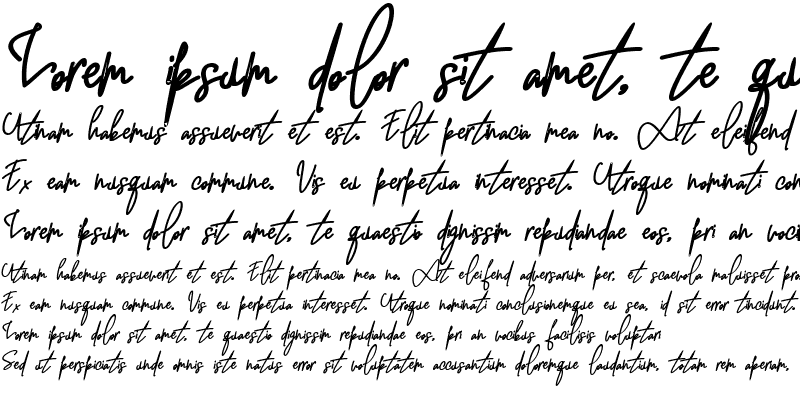 Lorem ipsum dolor sit amet, te qu
Utinam habemus assueverit et est. Elit pertinacia mea no. At eleifend
Ex eam nusquam commune. Vis eu perpetua interesset. Utroque nominati con
Lorem ipsum dolor sit amet, te quaestio dignissim repudiandae eos, pri an voci
Utinam habemus assueverit et est. Elit pertinacia mea no. At eleifend adversarium per, et scaevola maluisset pra
Ex eam nusquam commune. Vis eu perpetua interesset. Utroque nominati conclusionemque eu sea, id sit error tincidunt.
Lorem ipsum dolor sit amet, te quaestio dignissim repudiandae eos, pri an vocibus facilisis voluptari
Sed ut perspiciatis unde omnis iste natus error sit voluptatem accusantium doloremque laudantium, totam rem aperiam,